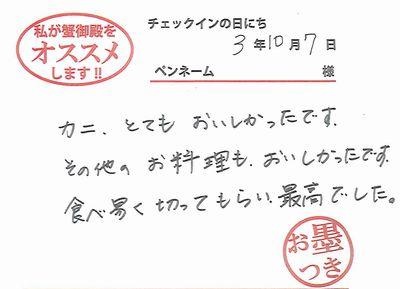 私が蟹御殿を
オススメ
します!!
チェックインの日にち
3年10月7日
ペンネーム 様
カニ、とても おいしかったです.
その他の お料理も、おいしかったです.
食べ易く切ってもらい.最高でした。
お墨
つき